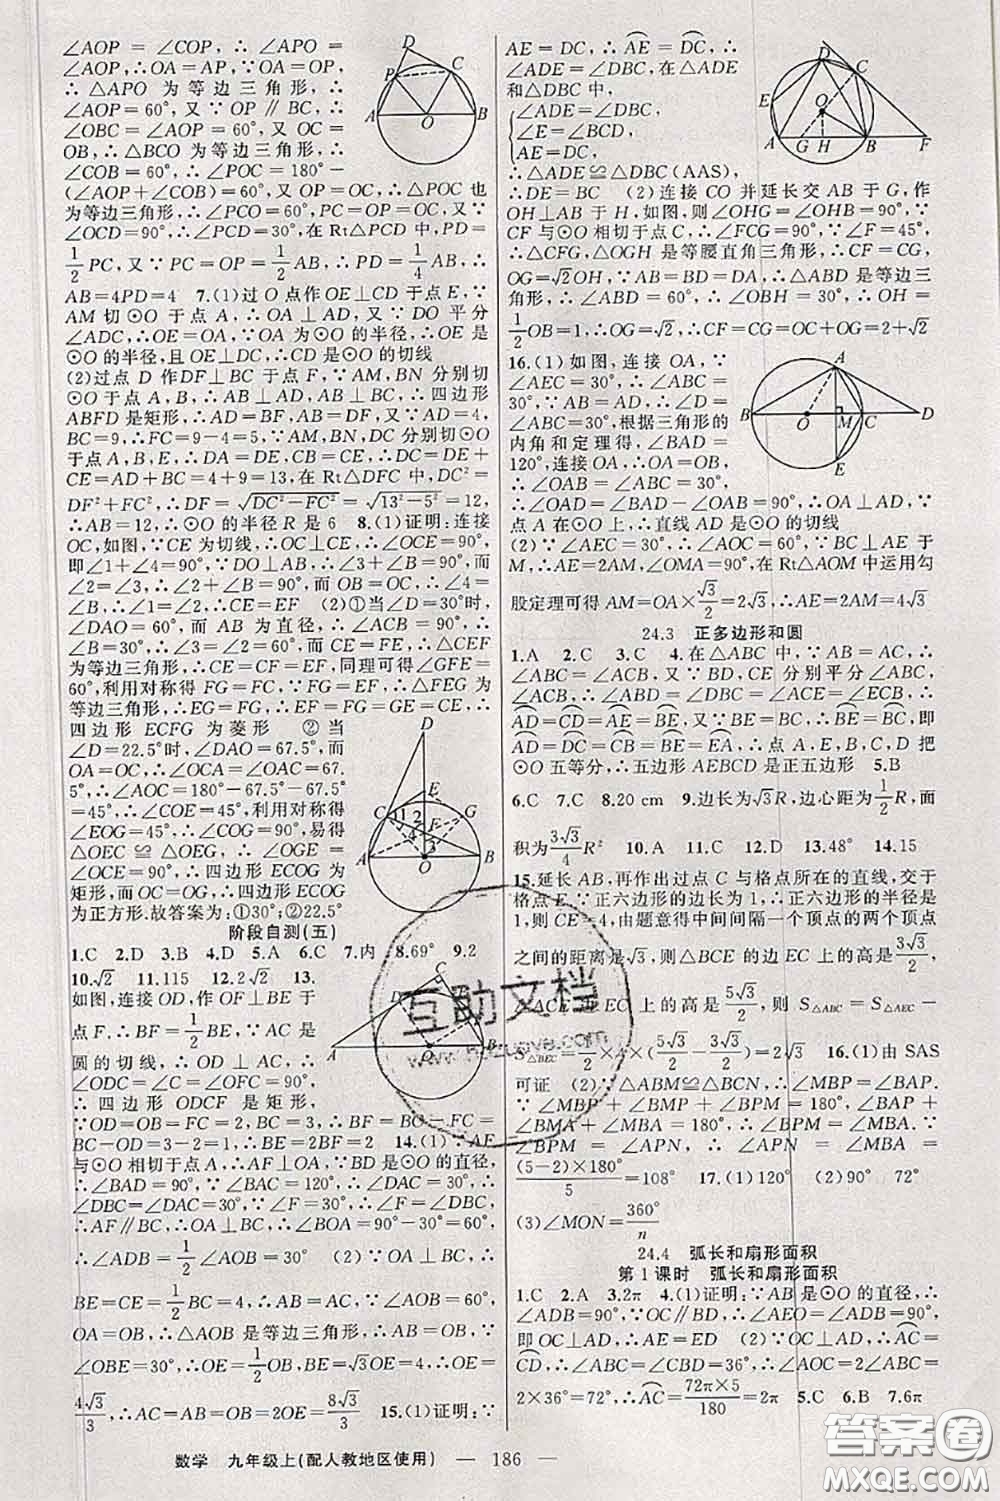 ∠AOP = ∠COP, ∴ ∠APO =
∠AOP, ∴OA=AP, ∵OA=OP,
∴ △APO 为等边三角形, ∴
∠AOP=60°, 又∵ OP∥BC, ∴
∠OBC = ∠AOP = 60°, 又 OC =
OB, ∴△BCO 为等边三角形, ∴
∠COB = 60°, ∴ ∠POC = 180° -
(∠AOP+∠COB)=60°, 又 OP=OC, ∴△POC 也
为等边三角形, ∴∠PCO=60°, PC=OP=OC, 又∵
∠OCD=90°, ∴∠PCD=30°, 在 Rt△PCD 中, PD=
1/2 PC, 又∵ PC = OP = 1/2 AB, ∴ PD = 1/4 AB, ∴
AB=4PD=4 7.(1)过 O 点作 OE⊥CD 于点 E, ∵
AM 切⊙O 于点 A, ∴OA⊥AD, 又∵ DO 平分
∠ADC, ∴OE=OA, ∵OA 为⊙O 的半径, ∴OE 是
⊙O 的半径, 且 OE⊥DC, ∴CD 是⊙O 的切线
(2)过点 D 作DF⊥BC 于点 F, ∵AM, BN 分别切
⊙O 于点 A, B, ∴AB⊥AD, AB⊥BC, ∴四边形
ABFD 是矩形, ∴AD=BF, AB=DF, 又∵AD=4,
BC=9, ∴FC=9-4=5, ∵AM, BN, DC 分别切⊙O
于点 A, B, E, ∴DA=DE, CB=CE, ∴DC=DE+
CE=AD+BC=4+9=13, 在 Rt△DFC 中, DC²=
DF²+FC², ∴DF=√(DC²-FC²)=√(13²-5²)=12,
∴AB=12, ∴⊙O 的半径 R 是 6 8.(1)证明:连接
OC, 如图, ∵CE 为切线, ∴OC⊥CE, ∴∠OCE=90°,
即∠1+∠4=90°, ∵DO⊥AB, ∴∠3+∠B=90°, 而
∠2=∠3, ∴∠2+∠B=90°, 而 OB=OC, ∴∠4=
∠B, ∴∠1=∠2, ∴CE=EF (2)①当∠D=30°时,
∠DAO = 60°, 而 AB 为直径, ∴ ∠ACB = 90°, ∴
∠B=30°, ∴∠3=∠2=60°, 而 CE=FE, ∴△CEF
为等边三角形, ∴CE=CF=EF, 同理可得∠GFE=
60°, 利用对称得 FG=FC, ∵FG=EF, ∴△FEG 为
等边三角形, ∴EG=FG, ∴EF=FG=GE=CE, ∴
四边形 ECFG 为菱形 ②当
∠D=22.5°时, ∠DAO=67.5°, 而
OA=OC, ∴∠OCA=∠OAC=67.
5°, ∴∠AOC=180°-67.5°-67.5°
=45°, ∴∠COE=45°, 利用对称得
∠EOG=45°, ∴∠COG=90°, 易得
△OEC ≌ △OEG, ∴ ∠OGE =
∠OCE=90°, ∴四边形 ECOG 为
矩形, 而 OC=OG, ∴四边形 ECOG
为正方形. 故答案为:①30°;②22.5°
阶段自测(五)
1.C 2.D 3.B 4.D 5.A 6.C 7.内 8.69° 9.2
10.√2 11.115 12.2√2 13.
如图, 连接 OD, 作 OF⊥BE 于
点 F, ∴BF=1/2 BE, ∵AC 是
圆的切线, ∴OD⊥AC, ∴
∠ODC = ∠C = ∠OFC = 90°,
∴ 四边形 ODCF 是矩形,
∵OD=OB=FC=2, BC=3, ∴BF=BC-FC=
BC-OD=3-2=1, ∴BE=2BF=2 14.(1)∵AF
与⊙O 相切于点 A, ∴AF⊥OA, ∵BD 是⊙O 的直径,
∴∠BAD=90°, ∵∠BAC=120°, ∴∠DAC=30°, ∴
∠DBC=∠DAC=30°, ∵∠F=30°, ∴∠F=∠DBC,
∴AF∥BC, ∴OA⊥BC, ∴∠BOA=90°-30°=60°,
∴∠ADB=1/2∠AOB=30° (2)∵OA⊥BC, ∴
BE=CE=1/2 BC=4, ∴AB=AC, ∵∠AOB=60°,
OA=OB, ∴△AOB 是等边三角形, ∴AB=OB, ∵
∠OBE=30°, ∴OE=1/2 OB, BE=√3 OE=4, ∴OE=
4√3/3, ∴AC=AB=OB=2OE=8√3/3 15.(1)证明:∵
AE=DC, ∴AE=DC, ∴
∠ADE=∠DBC, 在△ADE
和△DBC 中,
∠ADE=∠DBC,
∠E=∠BCD,
AD=DB,
∴△ADE≌△DBC(AAS),
∴DE=BC (2)连接 CO 并延长交 AB 于 G, 作
OH⊥AB 于 H, 如图, 则∠OHG=∠OHB=90°, ∵
CF 与⊙O 相切于点 C, ∴∠FCG=90°, ∵∠F=45°,
∴△CFG, △OGH 是等腰直角三角形, ∴CF=CG,
OG=√2OH, ∵AB=BD=DA, ∴△ABD 是等边三
角形, ∴∠ABD = 60°, ∴∠OBH = 30°, ∴OH =
1/2 OB=1, ∴OG=√2, ∴CF=CG=OC+OG=2+√2
16.(1)如图, 连接 OA, ∵
∠AEC=30°, ∴∠B=30°,
∵ AB = AD, ∴ ∠D =
∠B=30°, 根据三角形的
内角和定理得, ∠BAD =
120°, 连接 OA, ∴OA=OB,
∴∠OAB=∠ABC=30°,
∴∠OAD=∠BAD-∠OAB=90°, ∴OA⊥AD, ∵
点 A 在⊙O 上, ∴直线 AD 是⊙O 的切线
(2)∵∠AEC=30°, ∴∠AOC=60°, ∵BC⊥AE 于
M, ∴AE=2AM, ∠OMA=90°, 在 Rt△AOM 中运用勾
股定理可得 AM=OA×√3/2=2√3, ∴AE=2AM=4√3
24.3 正多边形和圆
1.A 2.C 3.C 4.在△ABC 中, ∵AB=AC, ∴
∠ABC=∠ACB, 又∵ BD, CE 分别平分∠ABC,
∠ACB, ∴∠ABD=∠DBC=∠ACE=∠ECB, ∴
AD=CD=AE=BE, 又∵BE=BC, ∴BE=BC, 即
AD=DC=CB=BE=EA, ∴点 A, E, B, C, D 把
⊙O 五等分, ∴五边形 AEBCD 是正五边形 5.B
6.C 7.C 8.20 cm 9.边长为√3R, 边心距为1/2 R, 面
积为3√3/4 R² 10.A 11.C 12.D 13.48° 14.15
15.延长 AB, 再作出过点 C 与格点所在的直线, 交于
格点 E, ∵正六边形的边长为 1, ∴正六边形的半径是
1, 则 CE=4, 由题意得中间间隔一个顶点的两个顶点
之间的距离是√3, ∴△BCE 的边 EC 上的高是3√3/2,
△ACE 边 EC 上的高是5√3/2, 则 S△ABC = S△AEC -
S△BEC=1/2×4×(5√3/2-3√3/2)=2√3 16.(1)由 SAS
可证 (2)∵△ABM≌△BCN, ∴∠MBP=∠BAP.
∵ ∠MBP + ∠BMP + ∠BPM = 180°, ∠BAP +
∠BMA+∠MBA=180°, ∴∠BPM=∠MBA. ∵
∠BPM = ∠APN, ∴ ∠APN = ∠MBA =
(5-2)×180°/5=108° 17.(1)120° (2)90° 72°
(3)∠MON=360°/n
24.4 弧长和扇形面积
第 1 课时 弧长和扇形面积
1.C 2.A 3.2π 4.(1)证明:∵AB 是⊙O 的直径, ∴
∠ADB=90°, ∵OC∥BD, ∴∠AEO=∠ADB=90°,
即 OC⊥AD, ∴AE=ED (2)∵OC⊥AD, ∴AC=
CD, ∴∠ABC=∠CBD=36°, ∴∠AOC=2∠ABC=
2×36°=72°, ∴AC=72π×5/180=2π 5.C 6.B 7.6π
数学 九年级上(配人教地区使用) — 186 —
互助文档
答案圈
MXQE.COM